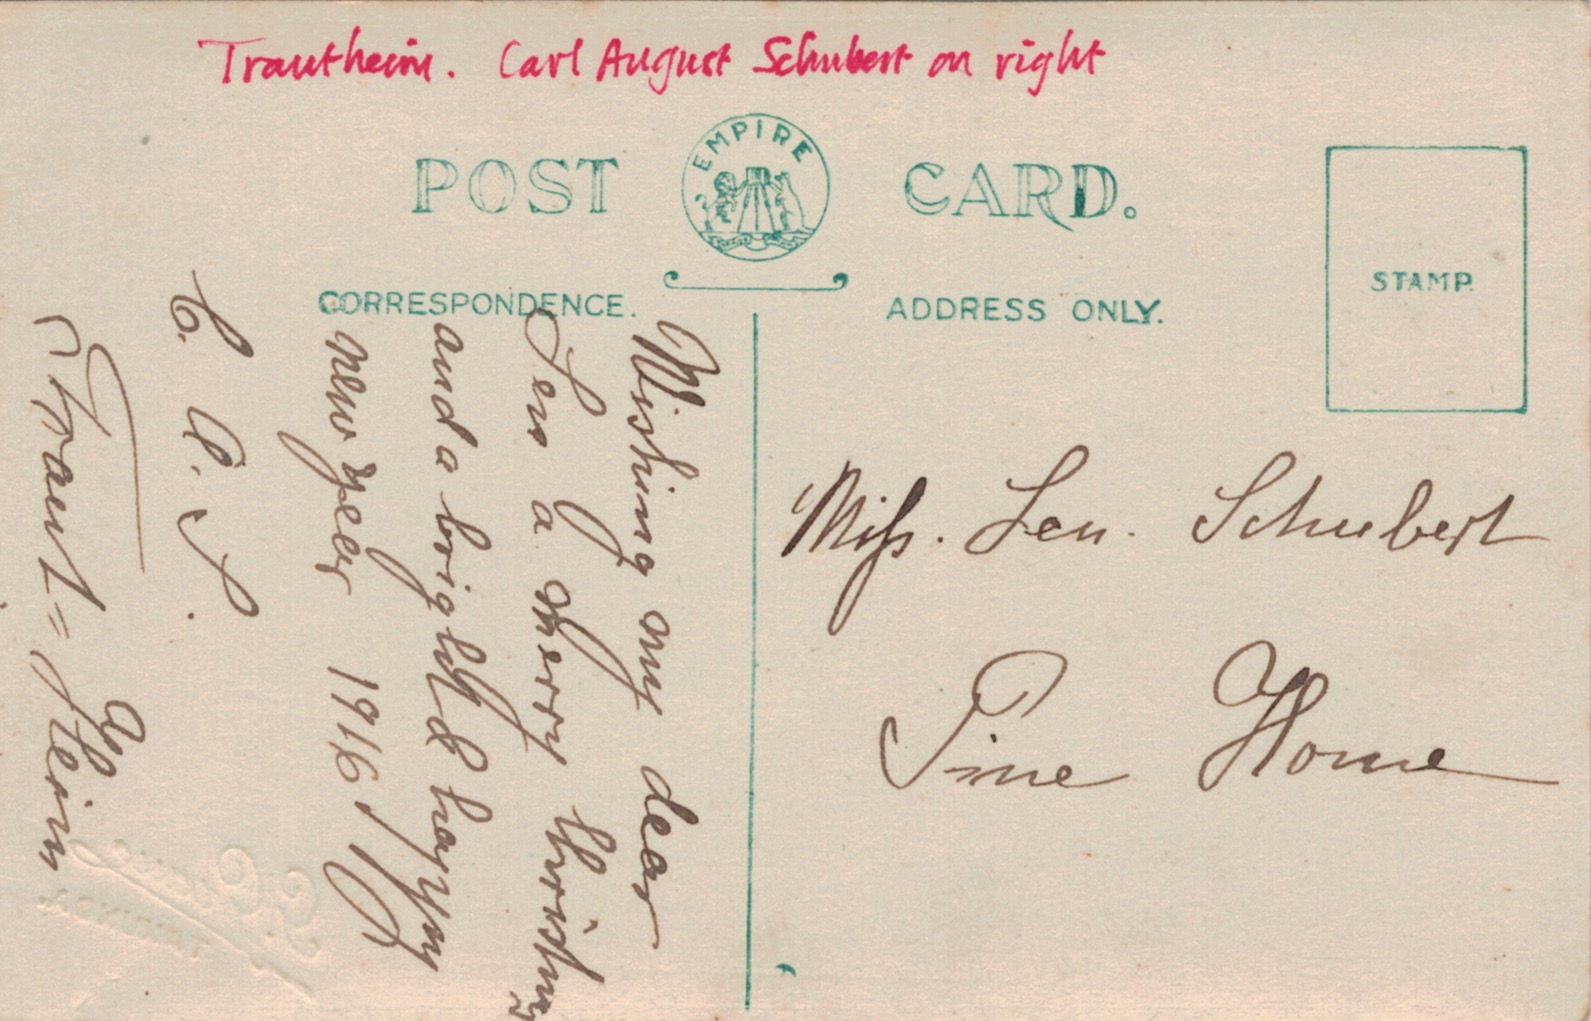 Trautheim. Carl August Schubert on right
POST CARD.
EMPIRE
CORRESPONDENCE.
ADDRESS ONLY.
STAMP.
Wishing my dear
Len a merry Christmas
and a bright & happy
new year 1916
C. A. S.
Traut=Heim
Miss. Len. Schubert
Pine Home